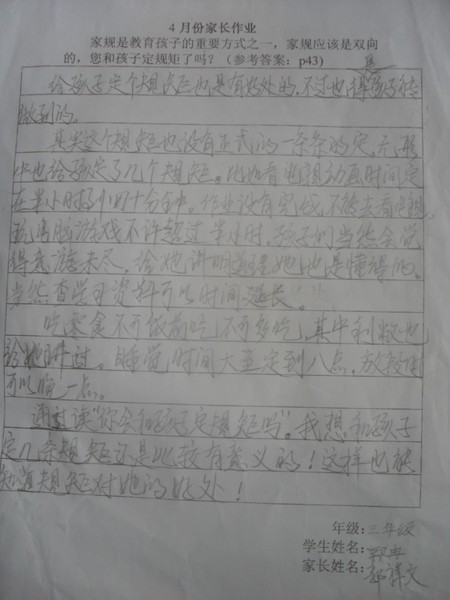 4月份家长作业
家规是教育孩子的重要方式之一，家规应该是双向
的，您和孩子定规矩了吗？（参考答案：p43）
给孩子定个规矩也是有好处的，不过也得孩子能
做到的。
其实这个规矩也没有正式的一条条的定，无形
中也给孩定了几个规矩。比如看电视动画时间定
在半小时到四十分钟。作业没有完成不能去看电视
玩电脑游戏不许超过半小时，孩子们当然会觉
得意犹未尽。给她讲明道理她也是懂得的。
当然查学习资料可以时间延长。
吃零食不可饭前吃，不可多吃，其中利弊也
给她讲过。睡觉时间大至定到八点，放假时
可以晚一点。
通过读"你会和孩子定规矩吗"。我想和孩子
定几条规矩还是比较有意义的！这样也能
知道规矩对她的好处！
年级：三年级
学生姓名：
家长姓名：